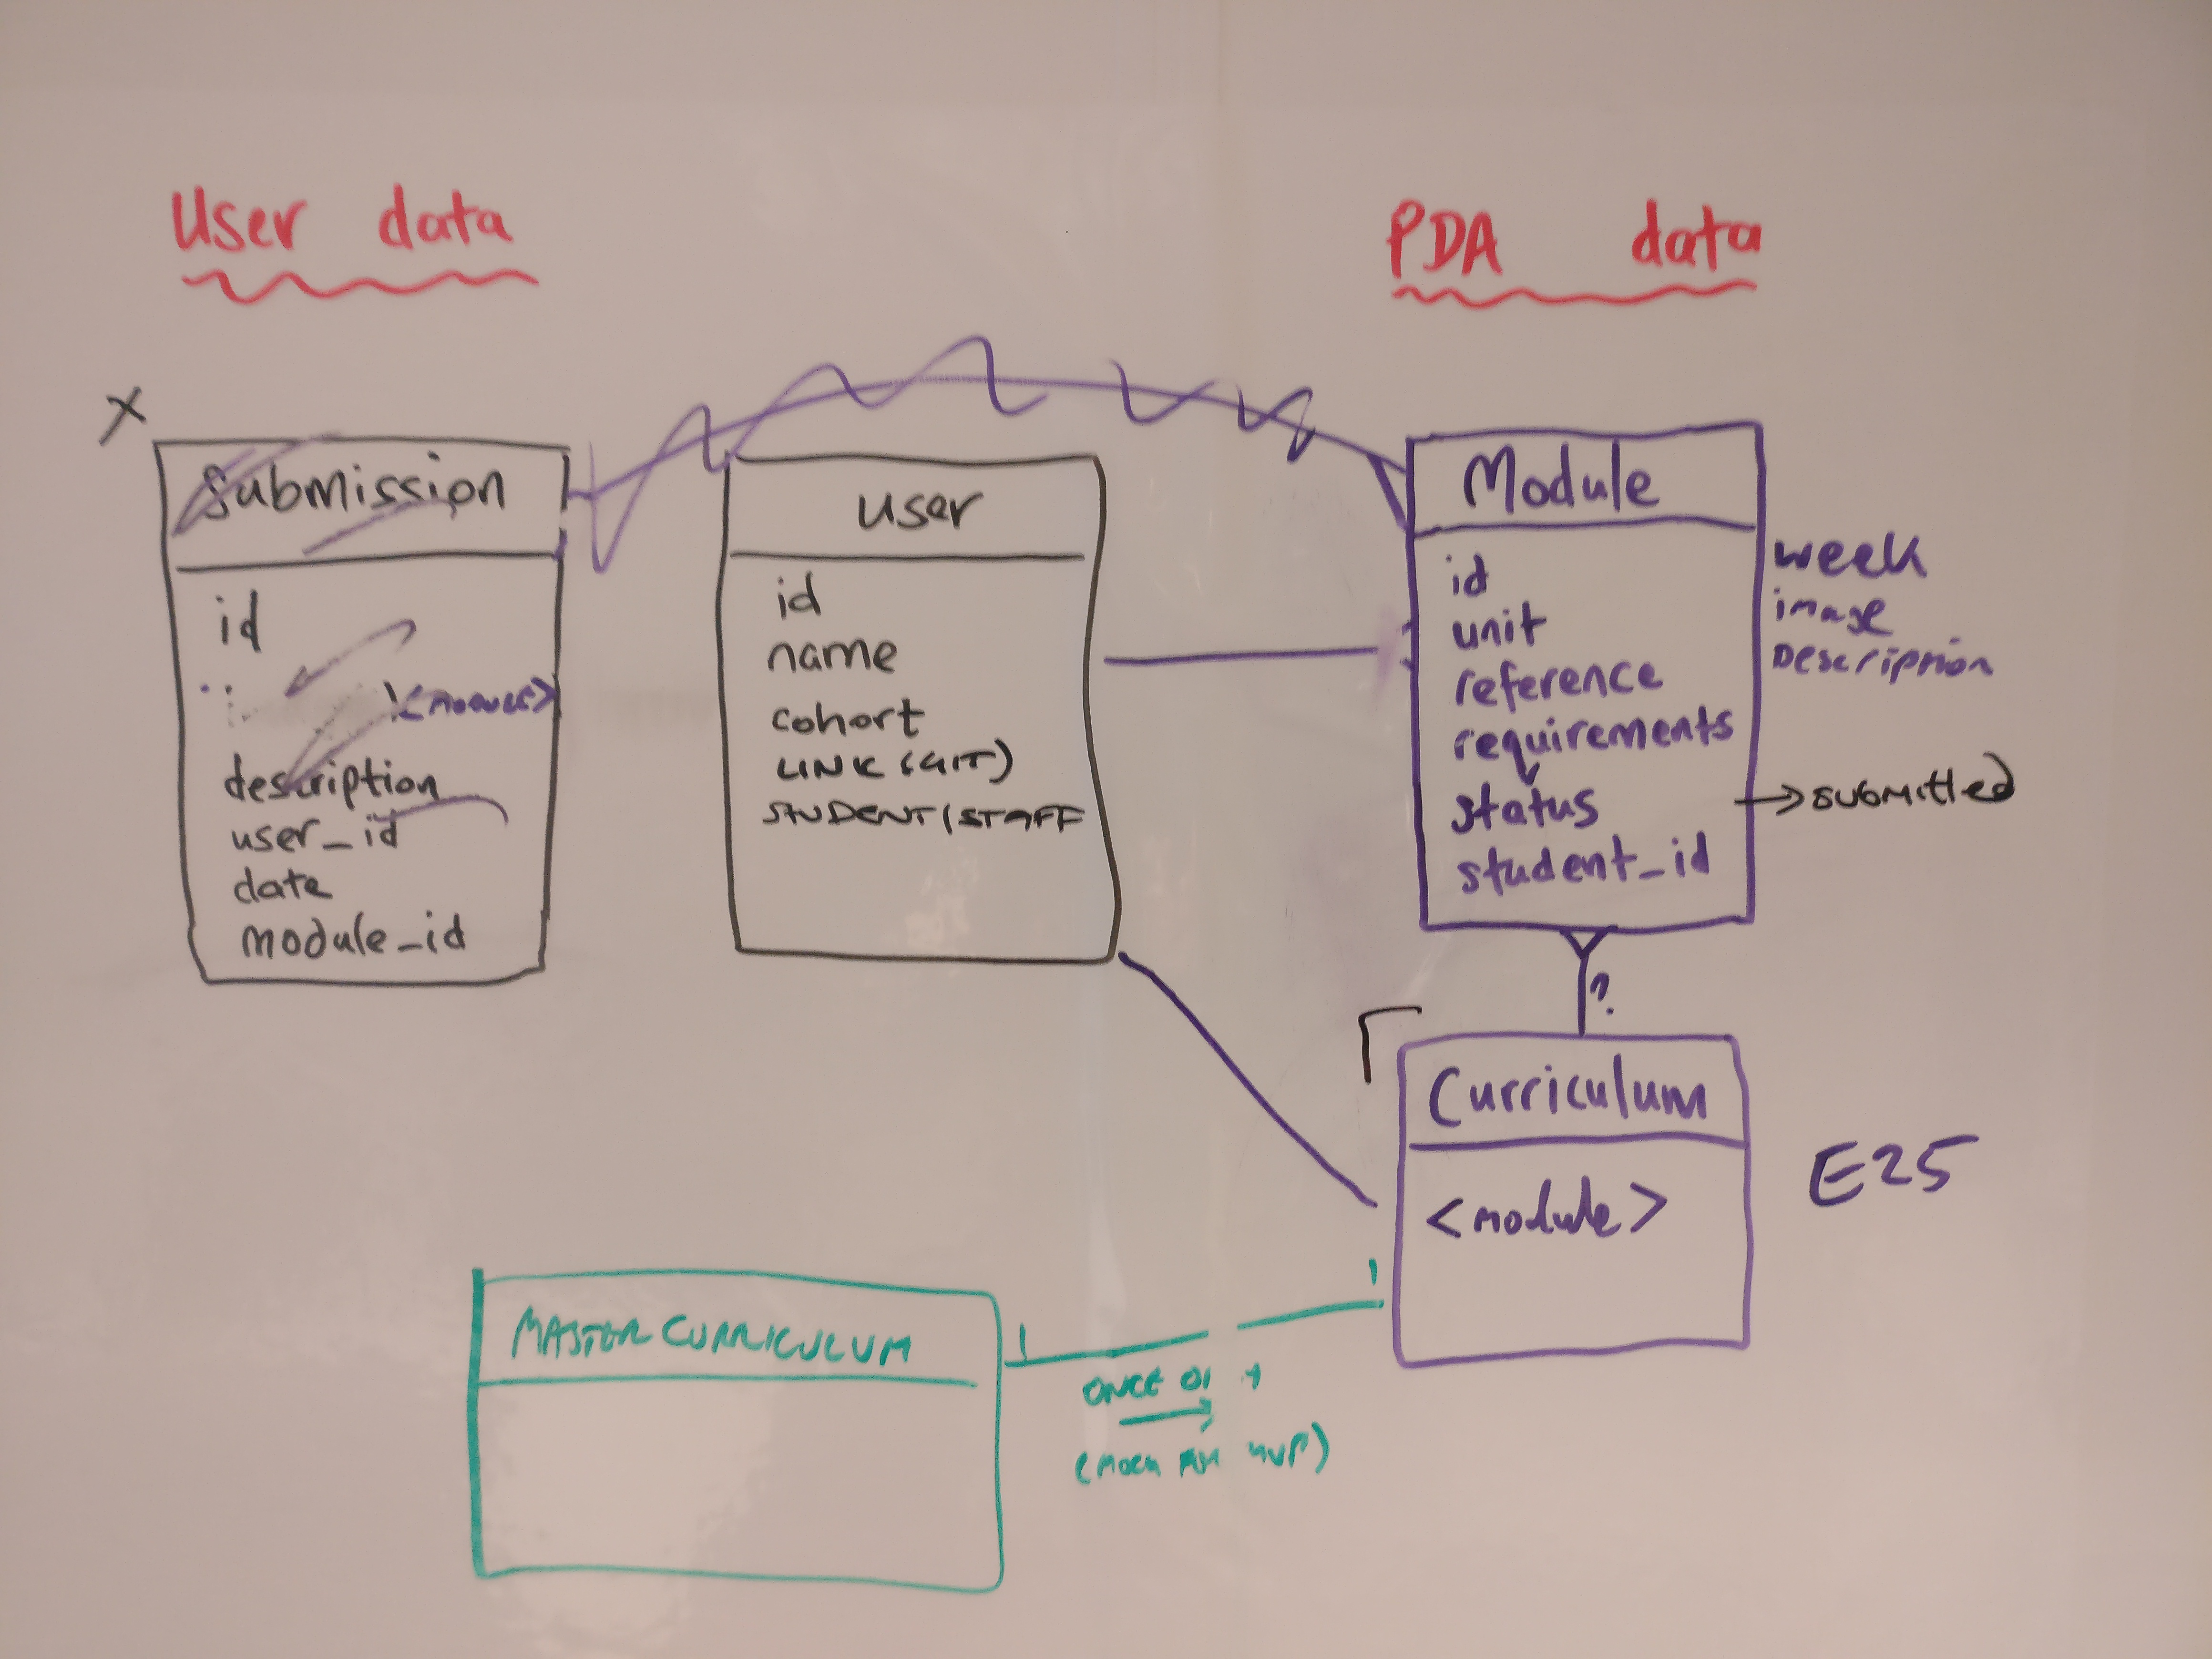 User data
PDA data
X
submission
id
<module>
description
user_id
date
module_id
user
id
name
cohort
LINK (GIT)
STUDENT/STAFF
Module
id
unit
reference
requirements
status
student_id
week
image
Description
submitted
?
Curriculum
<module>
E25
MASTER CURRICULUM
1
1
ONCE
(MOCK FOR MVP)